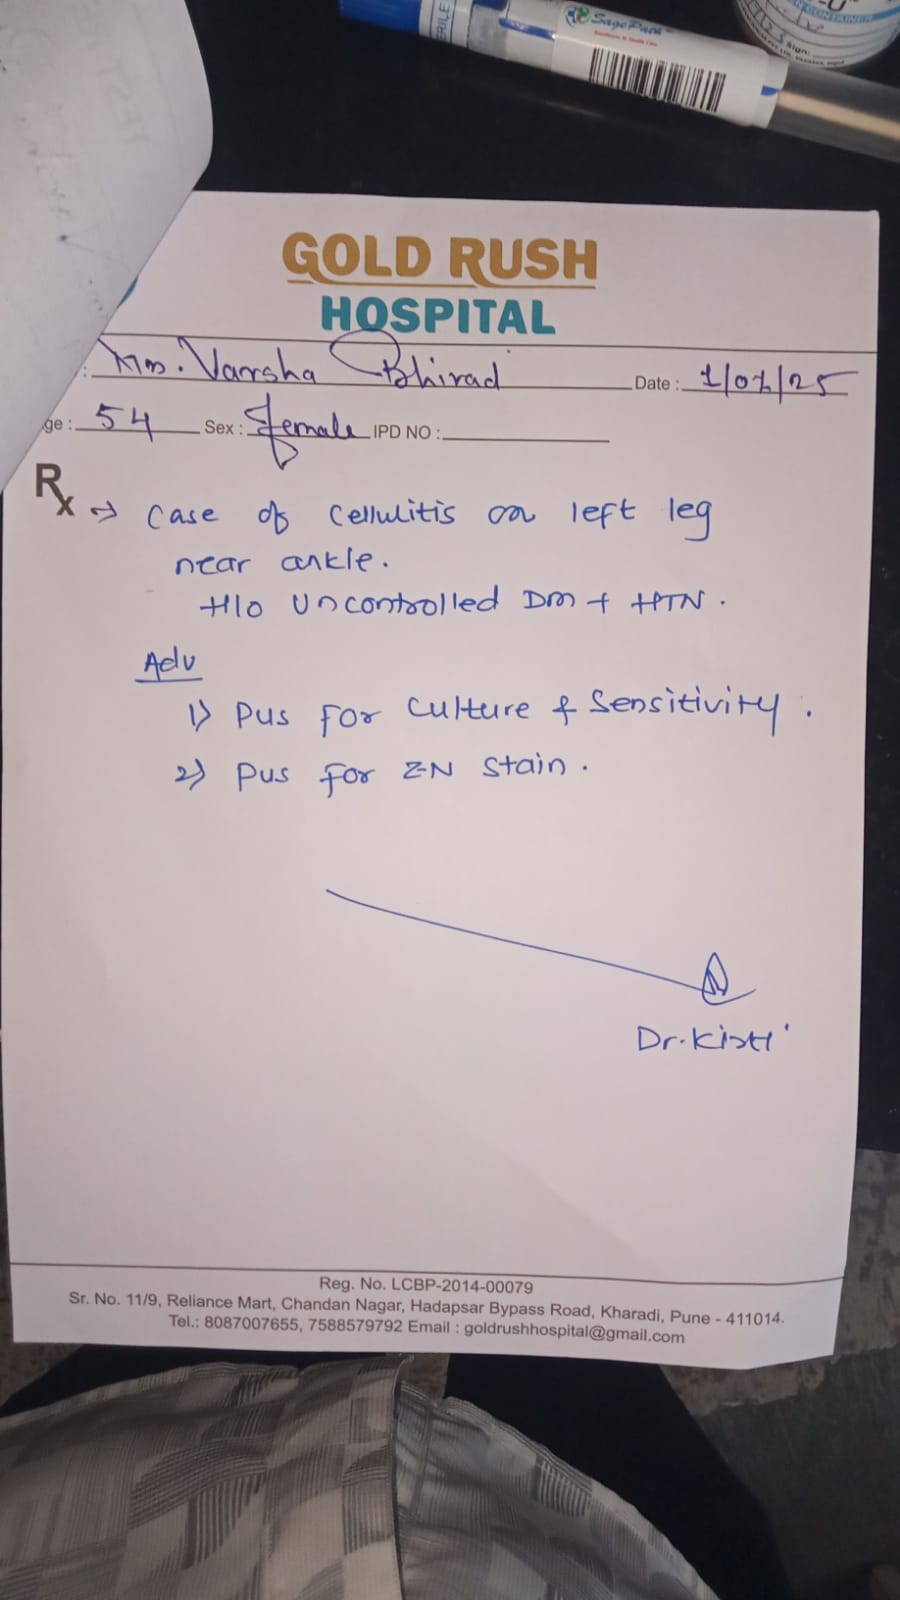 SagePath
GOLD RUSH
HOSPITAL
: Mrs. Varsha Bhirad Date : 1/07/25
ge : 54 Sex : female IPD NO :
Rx → Case of Cellulitis on left leg
near ankle.
H/o Uncontrolled DM + HTN.
Adv
1) Pus for Culture & Sensitivity.
2) Pus for ZN Stain.
Reg. No. LCBP-2014-00079
Sr. No. 11/9, Reliance Mart, Chandan Nagar, Hadapsar Bypass Road, Kharadi, Pune - 411014.
Tel.: 8087007655, 7588579792 Email : goldrushhospital@gmail.com